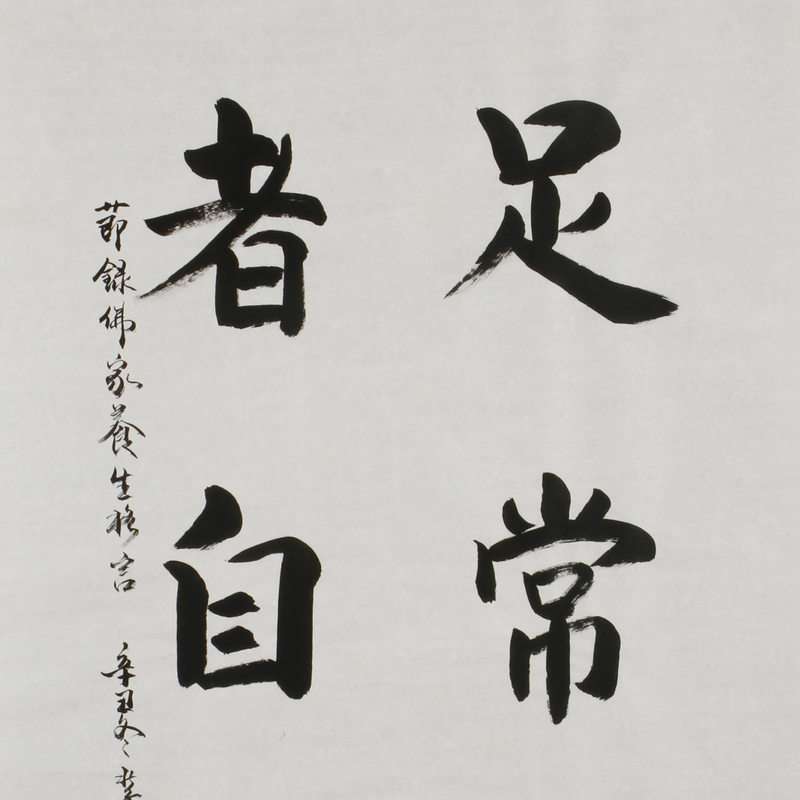 足常
者自
節錄佛家養生格言 辛丑冬